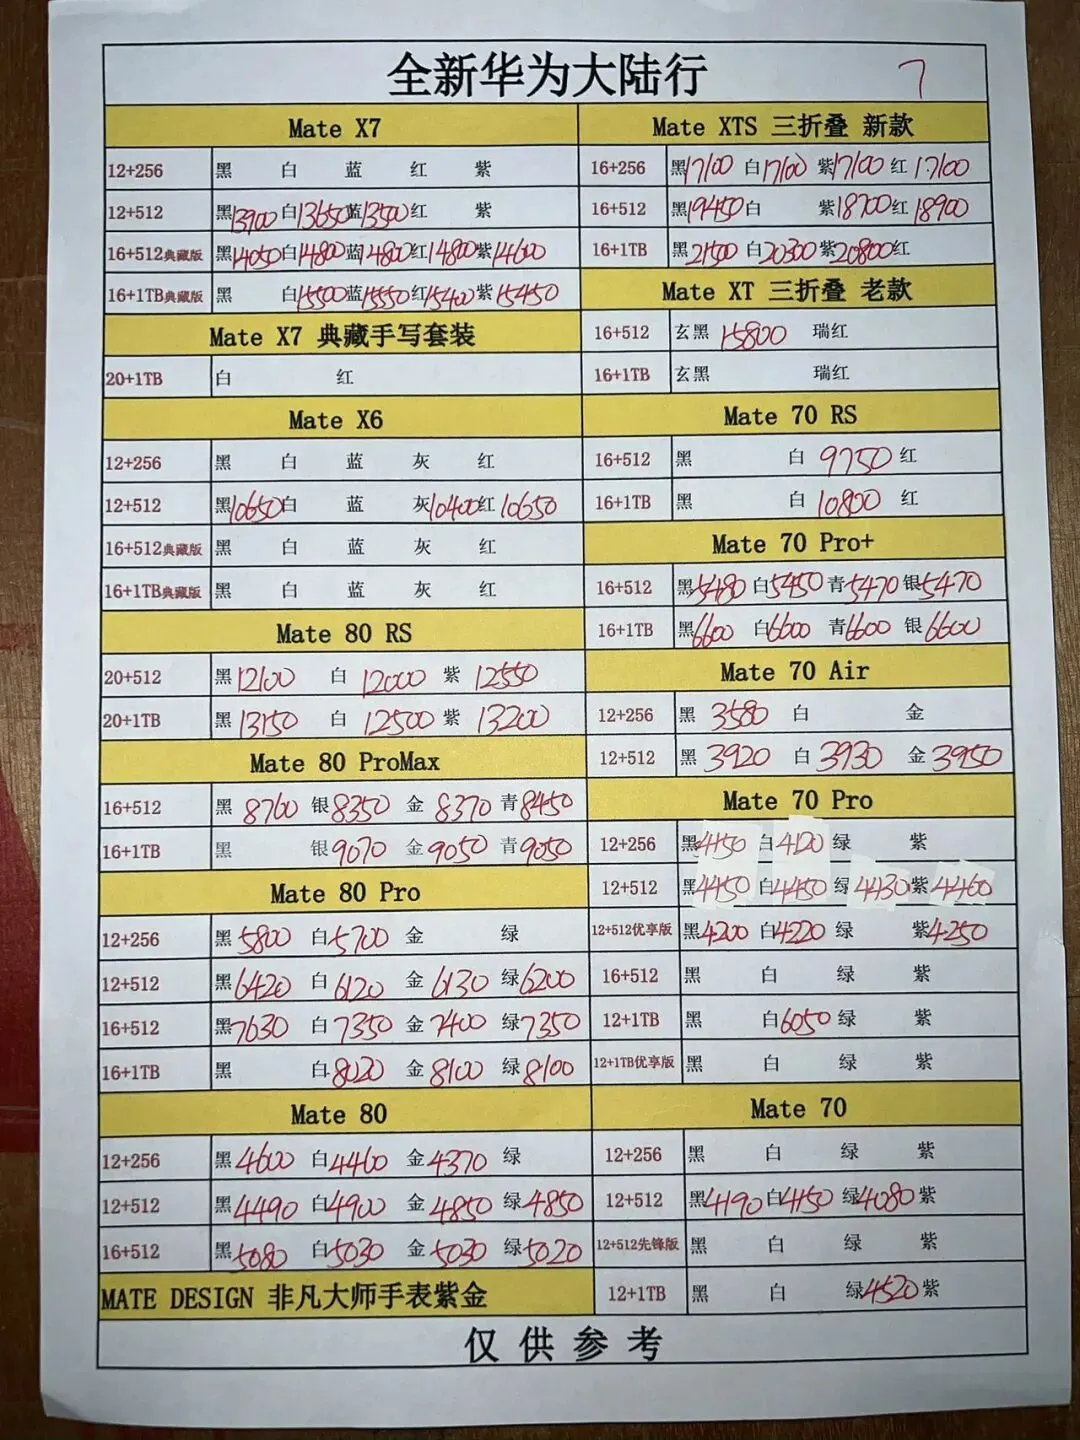 全新华为大陆行 7
Mate X7
12+256 黑 白 蓝 红 紫
12+512 黑13900 白13650 蓝13500 红 紫
16+512典藏版 黑14050 白14800 蓝14800 红14800 紫14600
16+1TB典藏版 黑 白15500 蓝15550 红15400 紫15450
Mate X7 典藏手写套装
20+1TB 白 红
Mate X6
12+256 黑 白 蓝 灰 红
12+512 黑10650 白 蓝 灰10400 红10650
16+512典藏版 黑 白 蓝 灰 红
16+1TB典藏版 黑 白 蓝 灰 红
Mate 80 RS
20+512 黑12100 白 12000 紫 12550
20+1TB 黑13150 白 12500 紫 13200
Mate 80 ProMax
16+512 黑 8760 银8350 金 8370 青8450
16+1TB 黑 银9070 金9050 青9050
Mate 80 Pro
12+256 黑5800 白5700 金 绿
12+512 黑6420 白6120 金6130 绿6200
16+512 黑7630 白7350 金7400 绿7350
16+1TB 黑 白8020 金8100 绿8100
Mate 80
12+256 黑4600 白4460 金4370 绿
12+512 黑4490 白4900 金4850 绿4850
16+512 黑5080 白5030 金5030 绿5020
MATE DESIGN 非凡大师手表紫金
Mate XTS 三折叠 新款
16+256 黑17100 白17100 紫17100 红17100
16+512 黑19450 白 紫18700 红18900
16+1TB 黑21500 白20300 紫20800 红
Mate XT 三折叠 老款
16+512 玄黑 15800 瑞红
16+1TB 玄黑 瑞红
Mate 70 RS
16+512 黑 白 9750 红
16+1TB 黑 白 10800 红
Mate 70 Pro+
16+512 黑5480 白5450 青5470 银5470
16+1TB 黑6600 白6600 青6600 银6600
Mate 70 Air
12+256 黑 3580 白 金
12+512 黑 3920 白 3930 金 3950
Mate 70 Pro
12+256 黑4150 白4120 绿 紫
12+512 黑4450 白4450 绿4430 紫4460
12+512优享版 黑4200 白4220 绿 紫4250
16+512 黑 白 绿 紫
12+1TB 黑 白6050 绿 紫
12+1TB优享版 黑 白 绿 紫
Mate 70
12+256 黑 白 绿 紫
12+512 黑4190 白4150 绿4080 紫
12+512先锋版 黑 白 绿 紫
12+1TB 黑 白 绿4520 紫
仅供参考